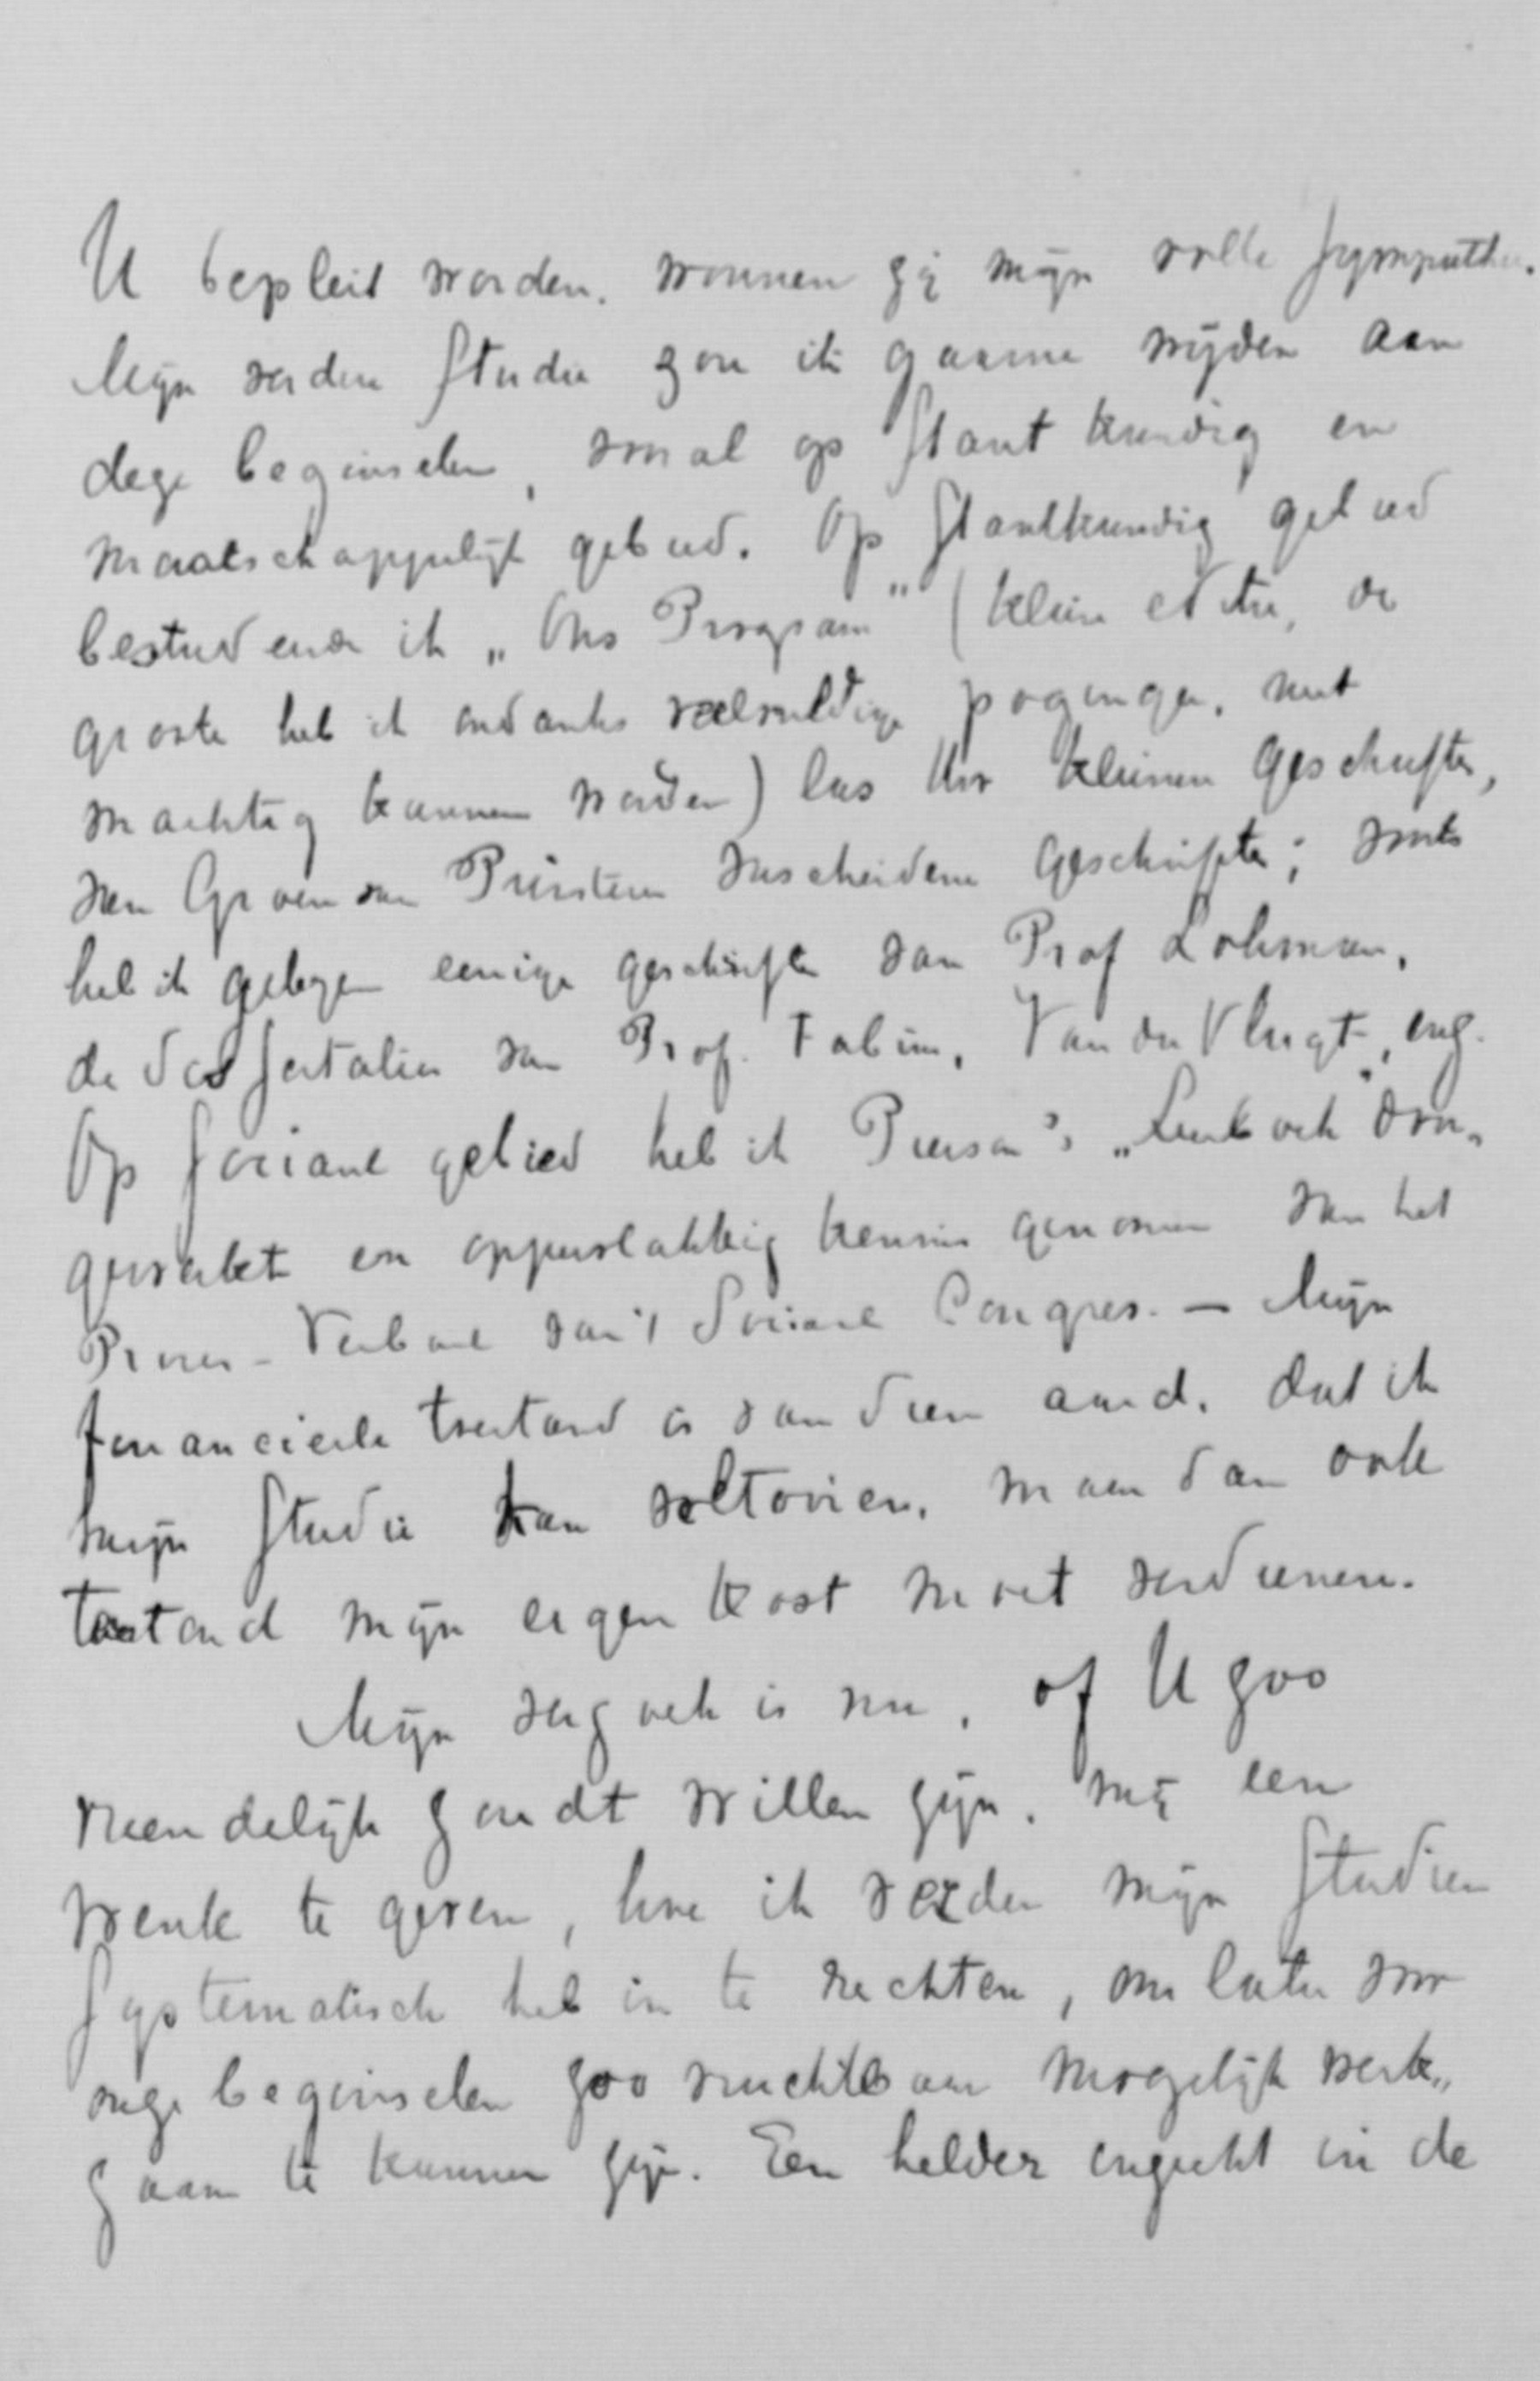 U bepleit worden, wonnen zij mijn volle sympathie.
Mijn verdere studie zou ik gaarne wijden aan
deze beginselen, vooral op staatkundig en
maatschappelijk gebied. Op staatkundig gebied
bestudeerde ik „Ons Program" (kleine editie, de
groote heb ik ondanks veelvuldige pogingen, niet
machtig kunnen worden) las Uw kleinere geschriften,
van Groen van Prinsterer verscheidene geschriften; voorts
heb ik gelezen eenige geschriften van Prof Lohman,
de dissertatien van Prof. Fabius, Van der Vlugt, enz.
Op sociaal gebied heb ik Pierson's „Leerboek" door„
gewerkt en oppervlakkig kennis genomen van het
Proces-Verbaal van 't Sociaal Congres. — Mijn
financieele toestand is van dien aard, dat ik
mijn studie kan voltooien, maar dan ook
terstond mijn eigen kost moet verdienen.
Mijn verzoek is nu, of U zoo
vriendelijk zoudt willen zijn, mij een
wenk te geven, hoe ik verder mijn studien
systematisch heb in te richten, om later voor
onze beginselen zoo vruchtbaar mogelijk werk„
zaam te kunnen zijn. Een helder inzicht in de